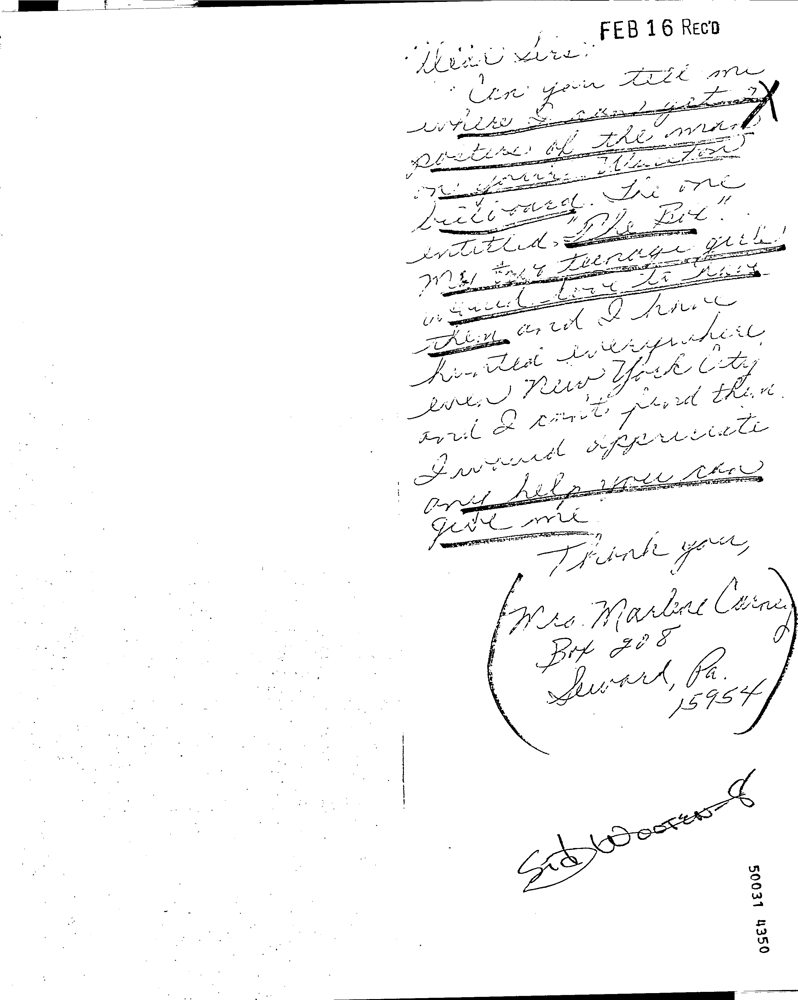 FEB 16 REC'D
Dear Sirs:
Can you tell me
where I can get
posters of the man
on your Winston
billboard. The one
entitled, "The Box".
My teenage girls
would love to have
them and I have
hunted everywhere
even New York City
and I can't find them.
I would appreciate
any help you can
give me
Thank you,
Mrs. Marlene Carney
Box 208
Seward, Pa.
15954
Sid Wooten-8
50031 4350